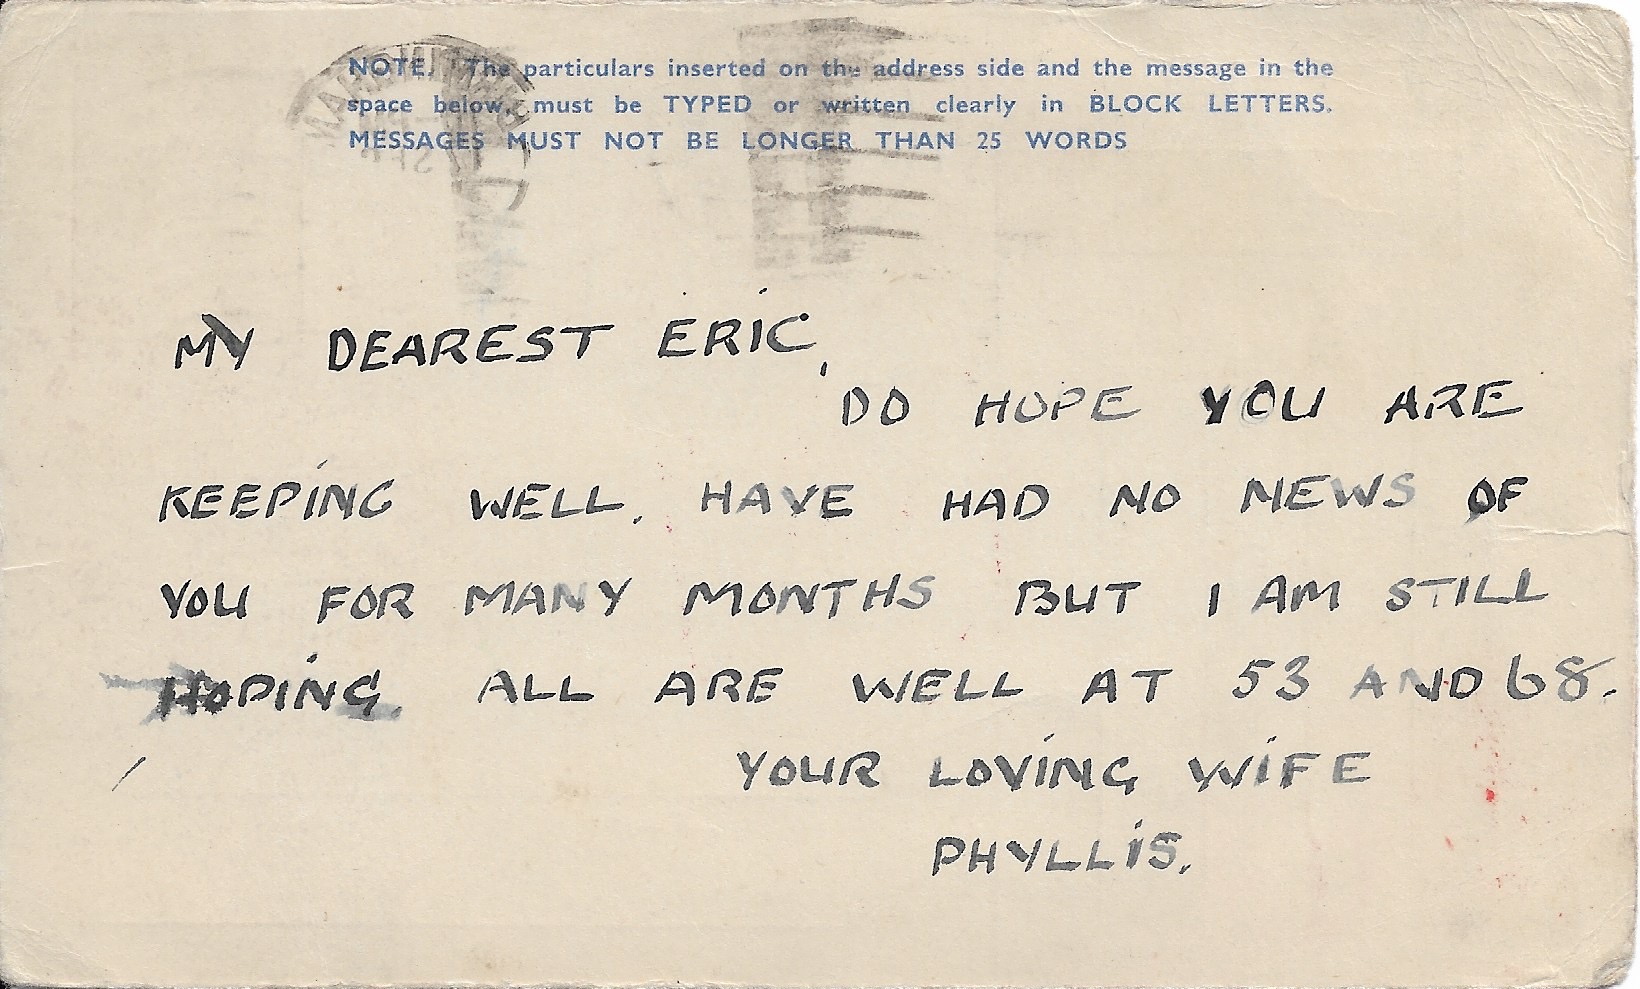 NOTE. The particulars inserted on the address side and the message in the
space below, must be TYPED or written clearly in BLOCK LETTERS.
MESSAGES MUST NOT BE LONGER THAN 25 WORDS
MY DEAREST ERIC,
DO HOPE YOU ARE
KEEPING WELL. HAVE HAD NO NEWS OF
YOU FOR MANY MONTHS BUT I AM STILL
HOPING. ALL ARE WELL AT 53 AND 68.
YOUR LOVING WIFE
PHYLLIS.